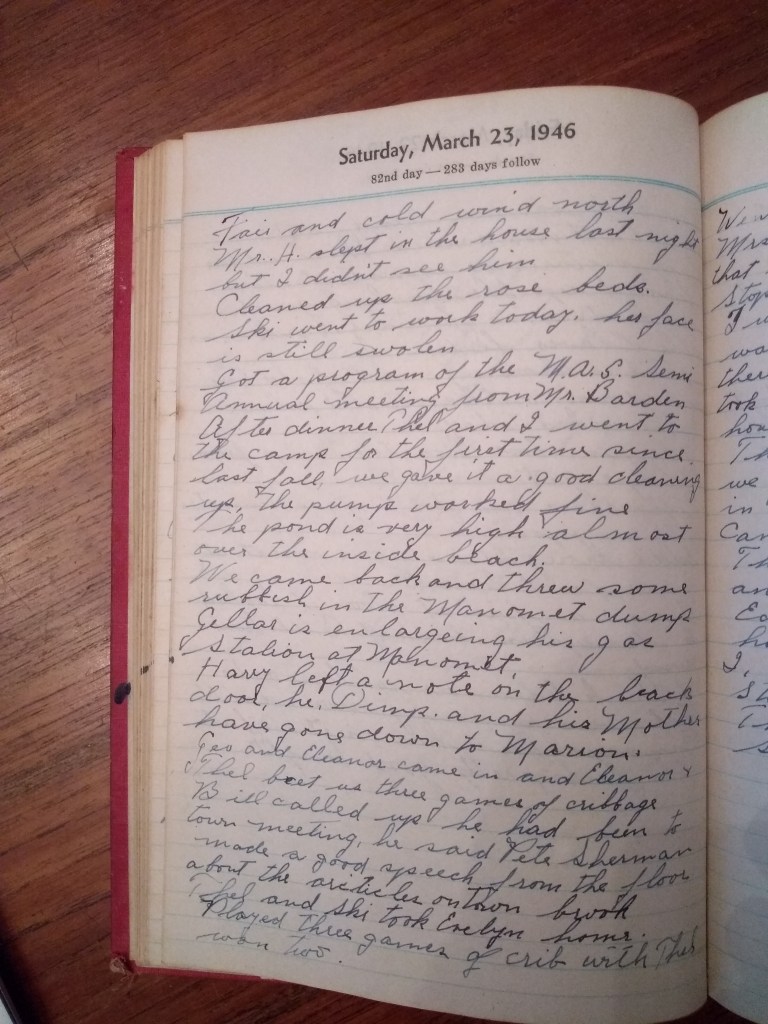 Saturday, March 23, 1946
82nd day — 283 days follow
Fair and cold wind north
Mr. H. slept in the house last night
but I didn't see him
Cleaned up the rose beds.
Ski went to work today. her face
is still swolen
Got a program of the M.A.S. Semi
Annual meeting from Mr. Barden
After dinner Thel and I went to
the camp for the first time since
last fall, we gave it a good cleaning
up, the pump worked fine
The pond is very high almost
over the inside beach.
We came back and threw some
rubbish in the Manomet dump
Gellar is enlargeing his gas
Station at Manomet.
Harv left a note on the back
door, he, Dimp. and his Mother
have gone down to Marion.
Geo and Eleanor came in and Eleanor &
Thel beet us three games of cribbage
Bill called up he had been to
town meeting, he said Pete Sherman
made a good speech from the floor
about the articles on town brook
Thel and Ski took Evelyn home.
Played three games of crib with Thel
won two.
We
Mrs
that
Stop
I w
wa
ther
took
hou
Th
we
in
Can
Th
an
Ea
ha
I,
St
Th
s